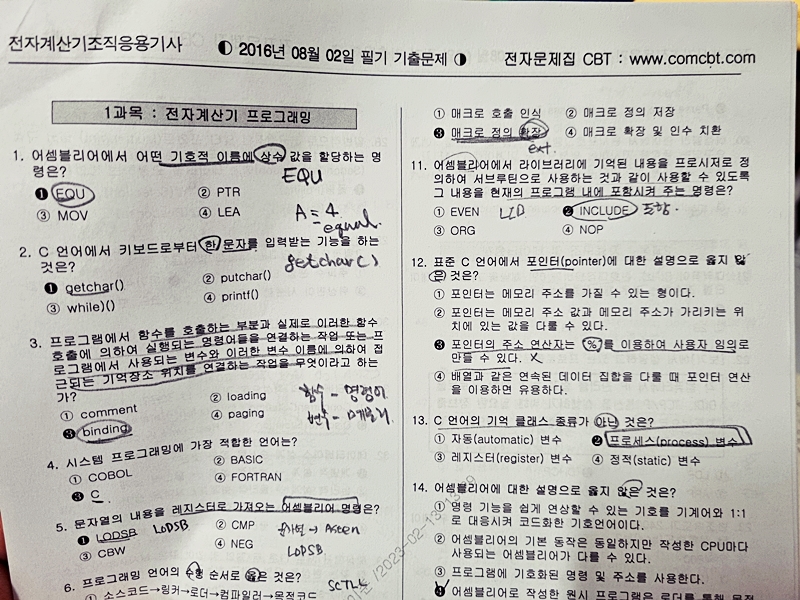 전자계산기조직응용기사
◐ 2016년 08월 02일 필기 기출문제 ◑
전자문제집 CBT : www.comcbt.com
1과목 : 전자계산기 프로그래밍
1. 어셈블리어에서 어떤 기호적 이름에 상수 값을 할당하는 명
령은?
EQU
❶ EQU
② PTR
③ MOV
④ LEA
A = 4
equal
2. C 언어에서 키보드로부터 한 문자를 입력받는 기능을 하는
것은?
getchar()
❶ getchar()
② putchar()
③ while)()
④ printf()
3. 프로그램에서 함수를 호출하는 부분과 실제로 이러한 함수
호출에 의하여 실행되는 명령어들을 연결하는 작업 또는 프
로그램에서 사용되는 변수와 이러한 변수 이름에 의하여 접
근되는 기억장소 위치를 연결하는 작업을 무엇이라고 하는
가?
① comment
② loading
❸ binding
④ paging
함수 - 명령어
변수 - 메모리
4. 시스템 프로그래밍에 가장 적합한 언어는?
① COBOL
② BASIC
❸ C
④ FORTRAN
5. 문자열의 내용을 레지스터로 가져오는 어셈블리어 명령은?
❶ LODSB
LODSB
② CMP
③ CBW
④ NEG
LODSB
6. 프로그래밍 언어의 수행 순서로 옳은 것은?
① 소스코드→링커→로더→컴파일러→목적코드
① 매크로 호출 인식
② 매크로 정의 저장
❸ 매크로 정의 확장
④ 매크로 확장 및 인수 치환
ext.
11. 어셈블리어에서 라이브러리에 기억된 내용을 프로시저로 정
의하여 서브루틴으로 사용하는 것과 같이 사용할 수 있도록
그 내용을 현재의 프로그램 내에 포함시켜 주는 명령은?
① EVEN
❷ INCLUDE
포함.
③ ORG
④ NOP
12. 표준 C 언어에서 포인터(pointer)에 대한 설명으로 옳지 않
은 것은?
① 포인터는 메모리 주소를 가질 수 있는 형이다.
② 포인터는 메모리 주소 값과 메모리 주소가 가리키는 위
치에 있는 값을 다룰 수 있다.
❸ 포인터의 주소 연산자는 %를 이용하여 사용자 임의로
만들 수 있다. X
④ 배열과 같은 연속된 데이터 집합을 다룰 때 포인터 연산
을 이용하면 유용하다.
13. C 언어의 기억 클래스 종류가 아닌 것은?
① 자동(automatic) 변수
❷ 프로세스(process) 변수
③ 레지스터(register) 변수
④ 정적(static) 변수
14. 어셈블리어에 대한 설명으로 옳지 않은 것은?
① 명령 기능을 쉽게 연상할 수 있는 기호를 기계어와 1:1
로 대응시켜 코드화한 기호언어이다.
② 어셈블리어의 기본 동작은 동일하지만 작성한 CPU마다
사용되는 어셈블리어가 다를 수 있다.
③ 프로그램에 기호화된 명령 및 주소를 사용한다.
❹ 어셈블리어로 작성한 원시 프로그램은 로더를 통해 목적